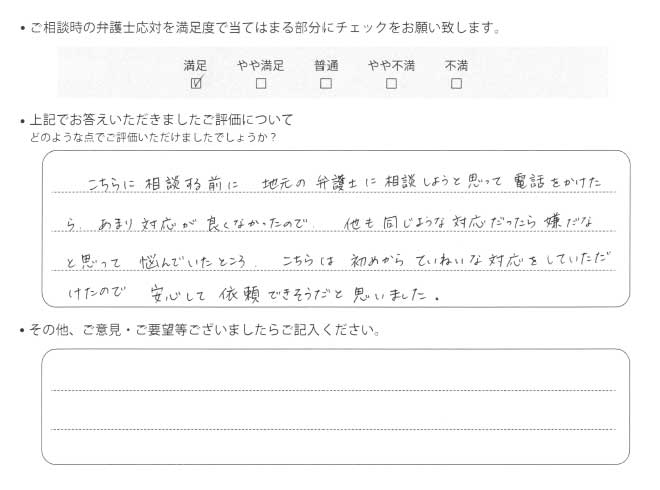 • ご相談時の弁護士応対を満足度で当てはまる部分にチェックをお願い致します。
満足 やや満足 普通 やや不満 不満
☑ □ □ □ □
• 上記でお答えいただきましたご評価について
どのような点でご評価いただけましたでしょうか？
こちらに相談する前に 地元の弁護士に相談しようと思って電話をかけた
ら、あまり対応が良くなかったので、他も同じような対応だったら嫌だな
と思って悩んでいたところ、こちらは初めからていねいな対応をしていただ
けたので 安心して依頼できそうだと思いました。
• その他、ご意見・ご要望等ございましたらご記入ください。